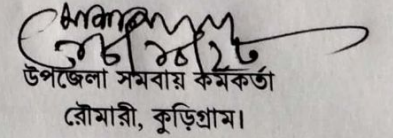 উপজেলা সমবায় কর্মকর্তা
রৌমারী, কুড়িগ্রাম।